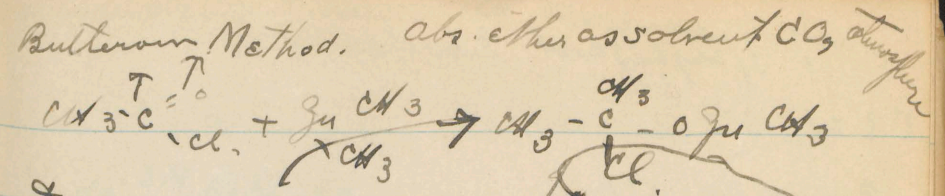 Butterow Method. Abs. ether as solvent CO2 atmosphere
CH3 - C = O Cl. + Zn CH3 CH3 → CH3 - C CH3 Cl. - O Zn CH3